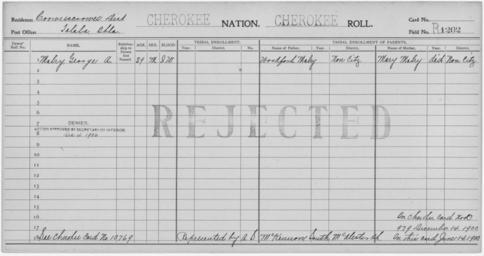 Residence: Cooweescoowee Dist
CHEROKEE NATION. CHEROKEE ROLL.
Card No.
Post Office: Talala, Okla.
Field No. R1202
Dawes' Roll No. NAME. Relationship to Person First Named. AGE. SEX. BLOOD. TRIBAL ENROLLMENT. TRIBAL ENROLLMENT OF PARENTS.
Year. District. No. Name of Father. Year. District. Name of Mother. Year. District.
1 George A. 29 M I W Woodford Non City Mary dead Non City
2
3
4
5
6
7 DENIED.
8 ACTION APPROVED BY SECRETARY OF INTERIOR.
REJECTED
9
10
11
12
13
14
15
16 On Cherokee card
17 See Cherokee Card No 10769 Represented by A. S. McKennon South McAlester
879 December 14, 1900
On this card June 14, 1900